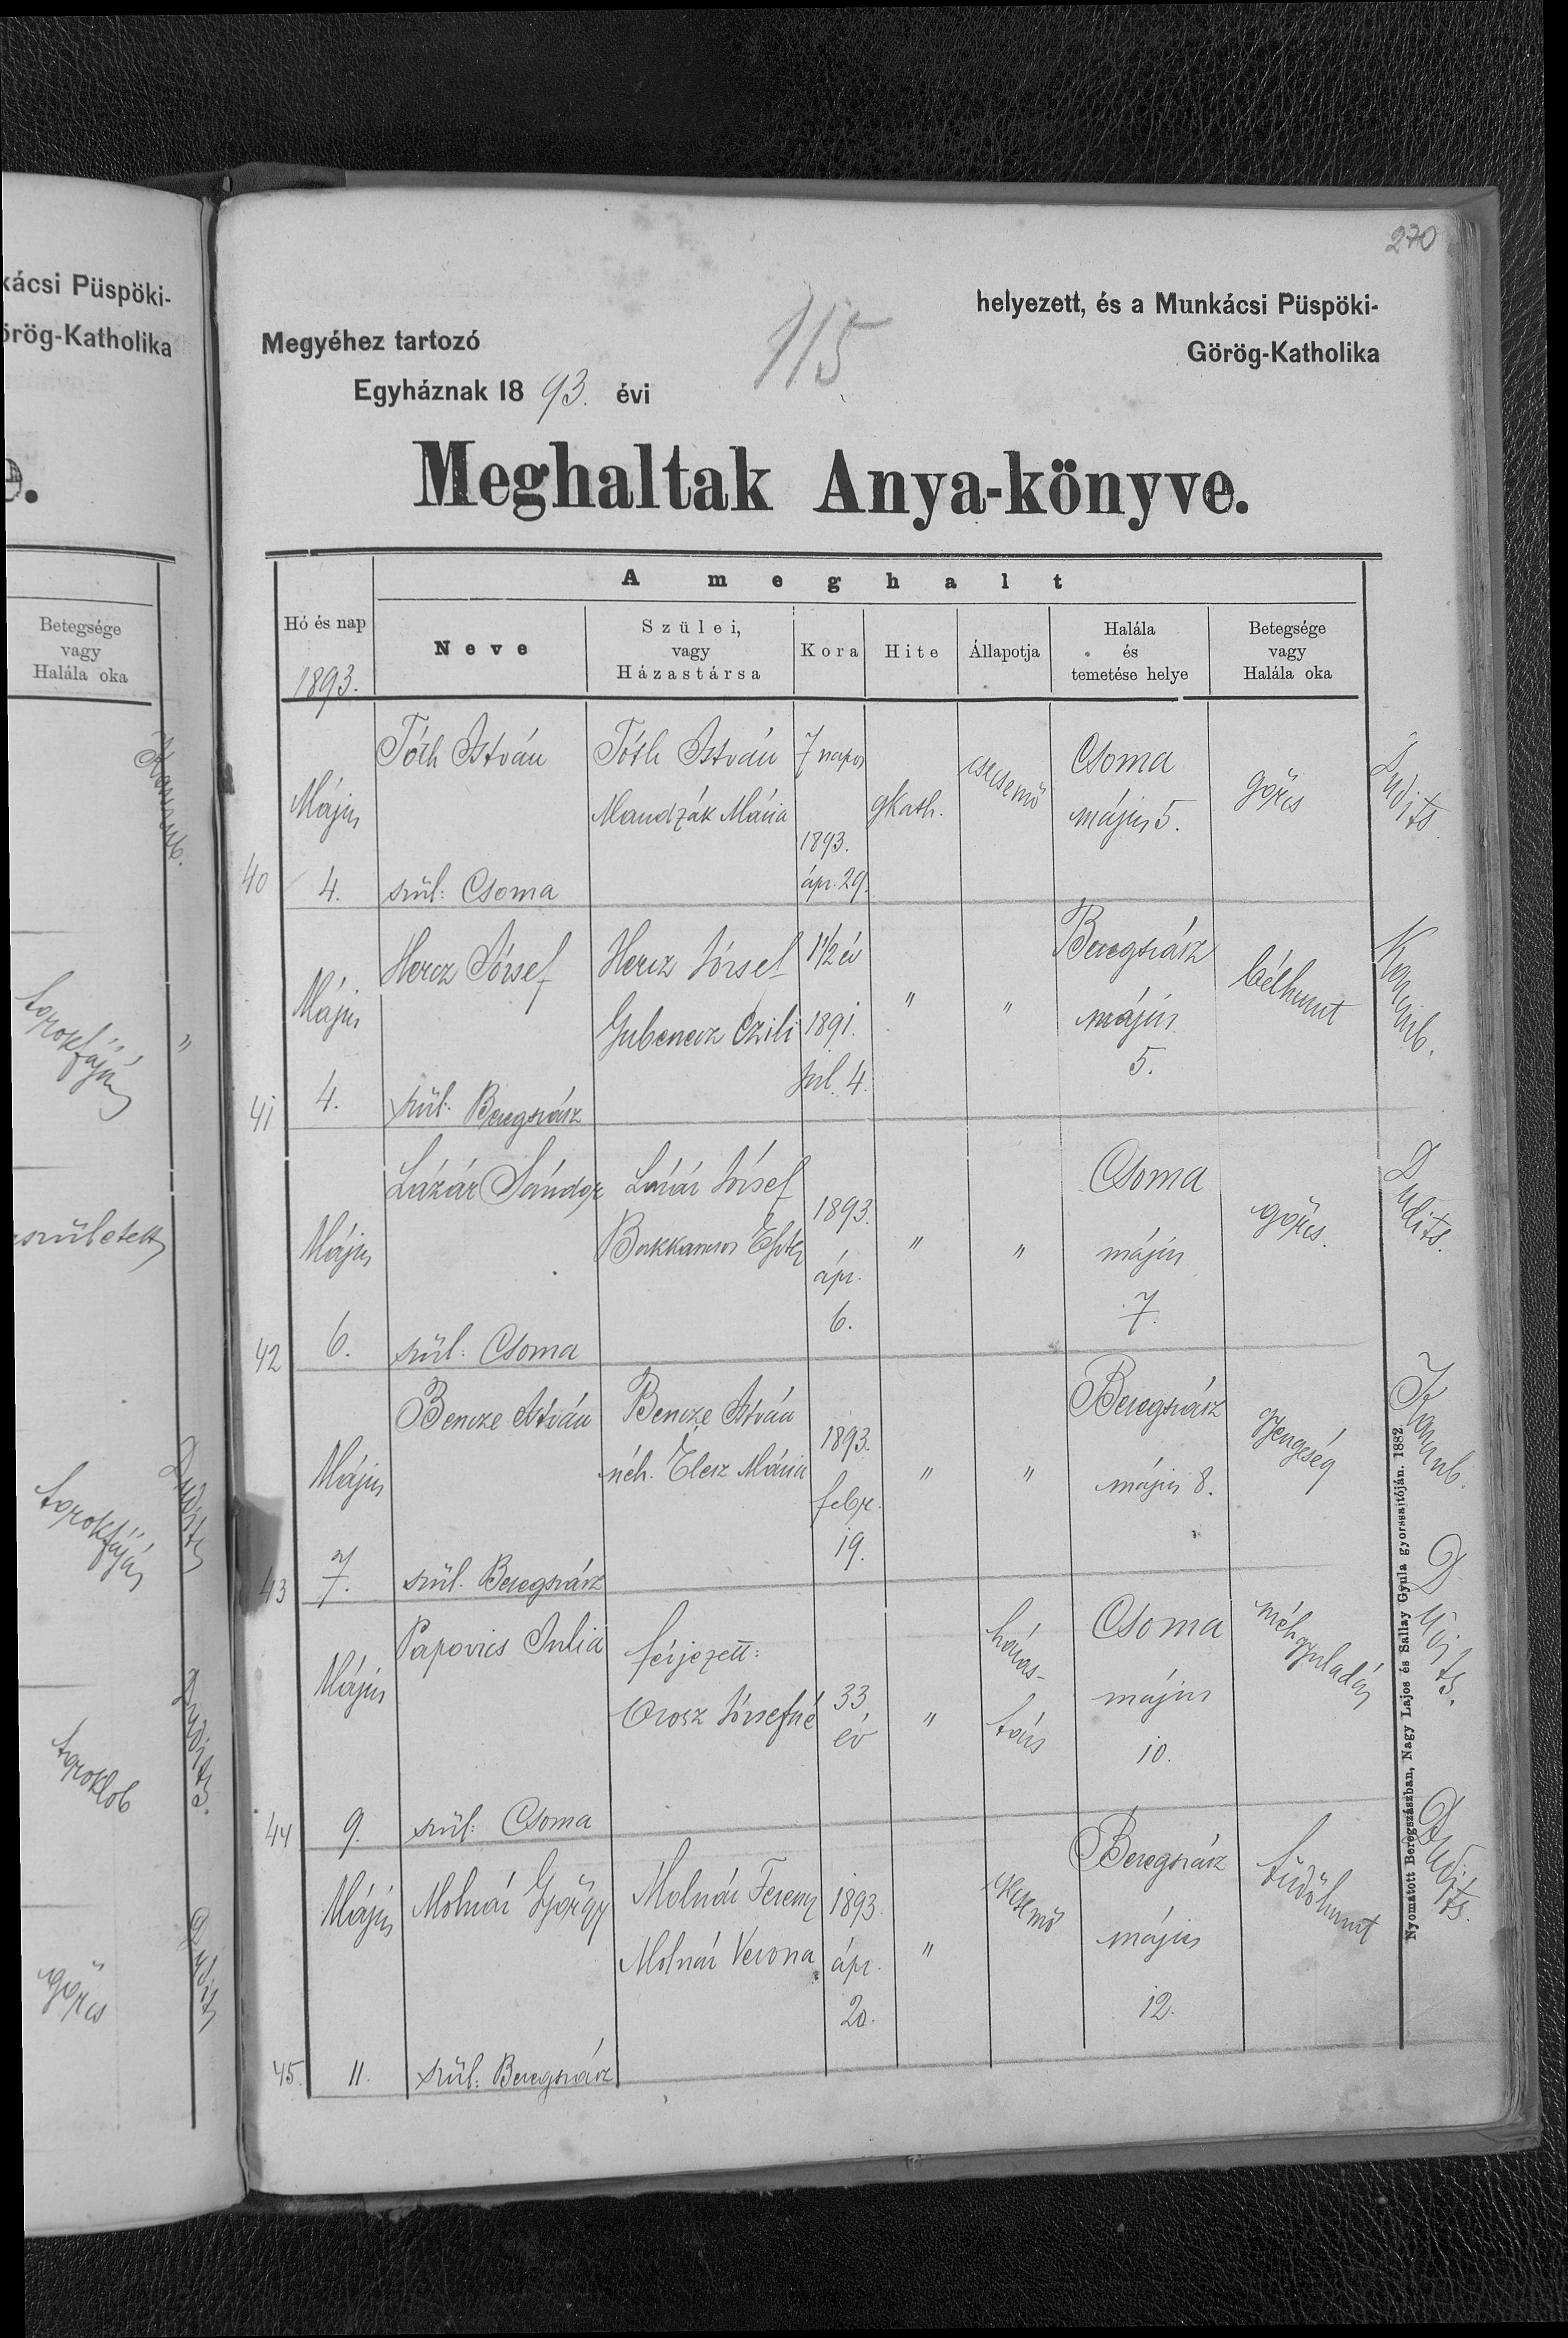 kácsi Püspöki-
örög-Katholika
e.
Betegsége
vagy
Halála oka
torokfájás
"
született
torokfájás
toroklob
görcs
270
115
helyezett, és a Munkácsi Püspöki-
Megyéhez tartozó
Görög-Katholika
Egyháznak 1893. évi
Meghaltak Anya-könyve.
A meghalt
Hó és nap
1893.
Neve
Szülei,
vagy
Házastársa
Kora
Hite
Állapotja
Halála
és
temetése helye
Betegsége
vagy
Halála oka
40
Május
4.
Tóth István
szül: Csoma
Tóth István
Mandzák Mária
7 napos
1893.
ápr. 29.
gkath.
csecsemő
Csoma
május 5.
görcs
Dudits
41
Május
4.
Hercz József
szül: Beregszász
Hercz József
Gubenecz Czili
1 1/2 év
1891.
júl. 4.
"
"
Beregszász
május
5.
bélhurut
42
Május
6.
Lázár Sándor
szül: Csoma
Lázár József
1893.
ápr.
6.
"
"
Csoma
május
7.
görcs.
Dudits.
43
Május
7.
Bencze István
szül. Beregszász
Bencze István
néh. Elesz Mária
1893.
febr.
19.
"
"
Beregszász
május 8.
gyengeség
44
Május
9.
Papovics Julia
szül: Csoma
férjezett:
Orosz Józsefné
33
év
"
házas-
társ
Csoma
május
10.
méhgyuladás
Dudits.
45.
Május
11.
Molnár György
szül: Beregszász
Molnár Ferencz
Molnár Verona
1893.
ápr.
20.
"
csecsemő
Beregszász
május
12.
tüdőhurut
Dudits.
Nyomatott Beregszászban, Nagy Lajos és Sallay Gyula gyorssajtóján. 1882.